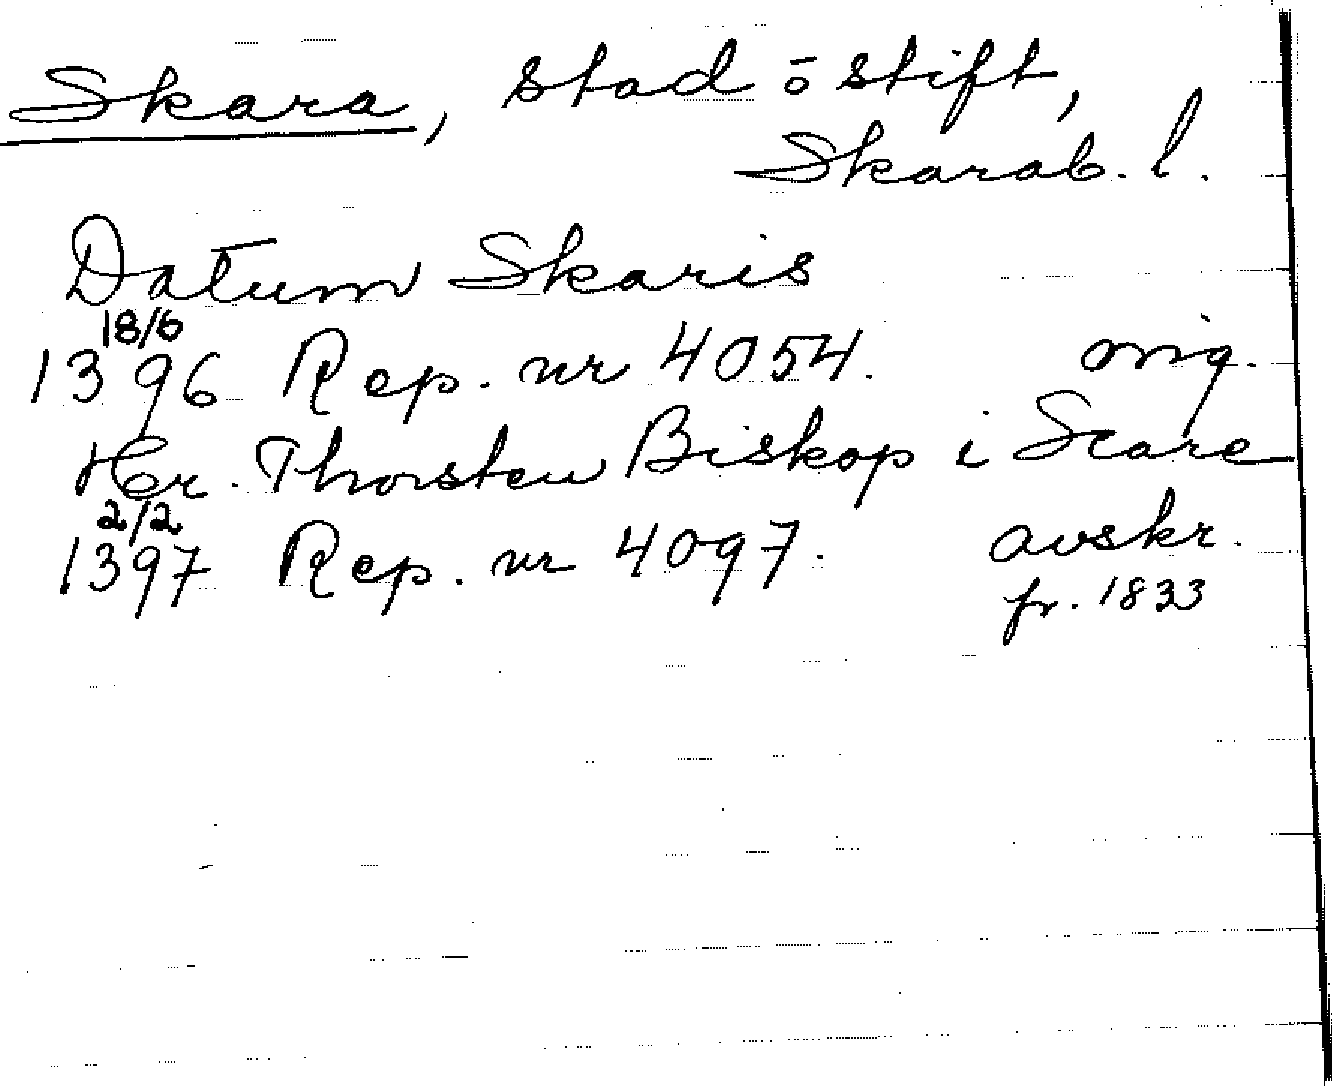 Skara, stad o stift,
Skarab. l.
Datum Skaris
18/6
1396 Rep. nr 4054. orig.
Her. Thorsten Biskop i Scare
2/2
1397 Rep. nr 4097. avskr.
fr. 1833